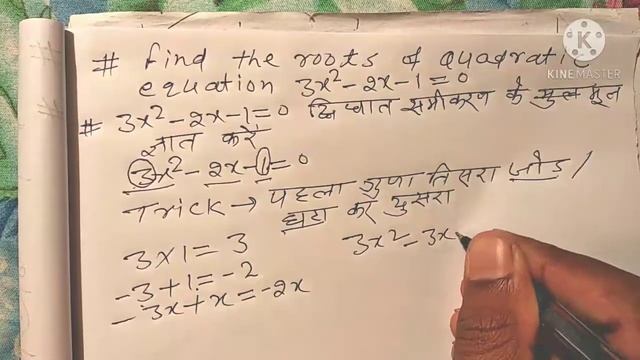 # find the roots of quadratic
equation 3x²-2x-1=0
KINEMASTER
# 3x²-2x-1=0 द्विघात समीकरण के मूल
ज्ञात करें
3x²-2x-1=0
Trick → पहला गुणा तिसरा जोड /
घटा कर दुसरा
3×1=3
-3+1=-2
-3x+x=-2x
3x²-3x